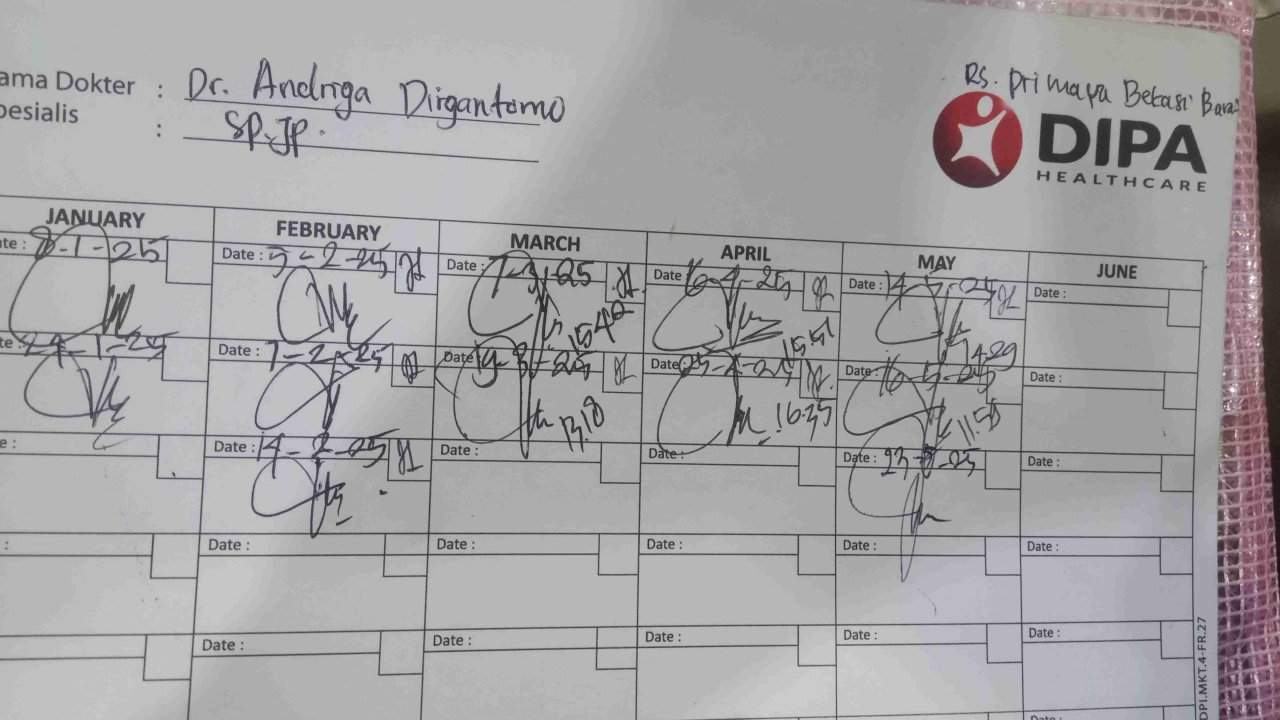 Rs. Primaya Bekasi Barat
ama Dokter : Dr. Andriga Dirgantomo
pesialis : SP.JP.
DIPA
HEALTHCARE
JANUARY FEBRUARY MARCH APRIL MAY JUNE
ate : 8-1-25 Date : 5-2-25 Date : 7-3-25 Date 16-4-25 Date : 14-5-25 Date :
15 42 15.51 14.29
ate : 24-1-25 Date : 7-2-25 Date 19-3-25 Date: 25-4-25 Date : 16-5-25 Date :
13.18 16.35 11.58
e : Date : 14-2-25 Date : Date : Date : 23-5-25 Date :
: Date : Date : Date : Date : Date :
Date : Date : Date : Date : Date :
Date :
DPI.MKT.4-FR.27